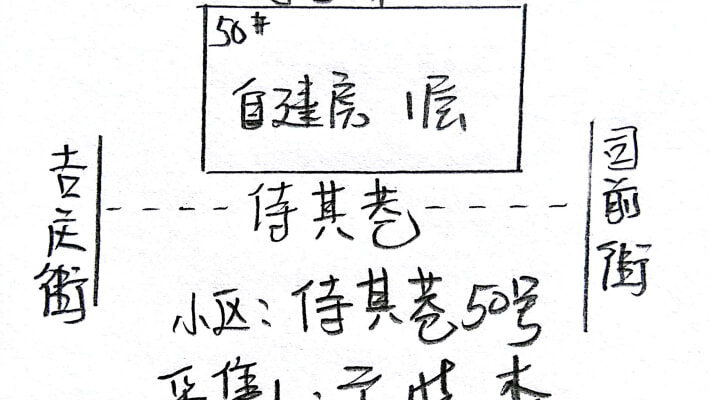 50#
自建房 1层
吉庆街
侍其巷
回前街
小区：侍其巷50号